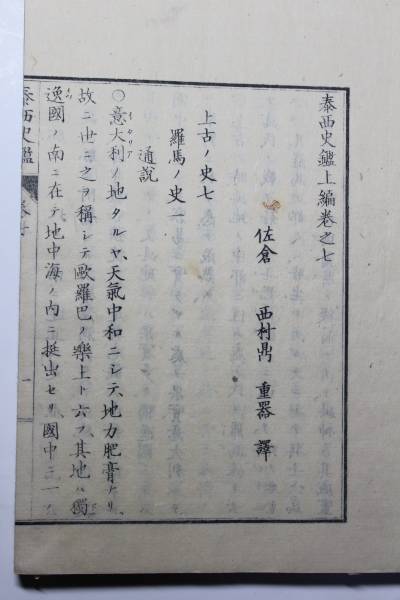 泰西史鑑上編卷之七
佐倉 西村鼎 重器 譯
上古ノ史七
羅馬ノ史一
通説
○意大利ノ地タルヤ、天氣中和ニシテ、地力肥膏ナリ、
イタリア
故ニ世ニ之ヲ稱シテ歐羅巴ノ樂土ト云フ其地ハ獨
逸國ノ南ニ在テ地中海ノ内ニ挺出セリ國中ニ一
泰西史鑑 卷七 一